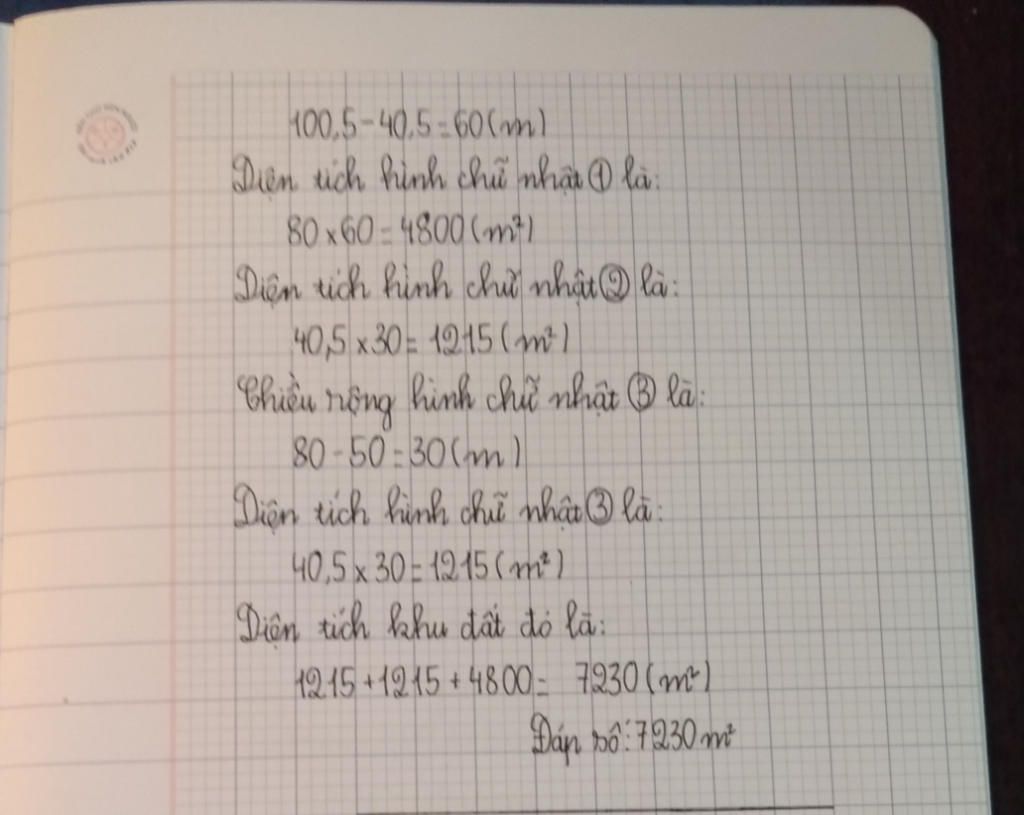 100,5-40,5=60(m)
Diện tích hình chữ nhật ① là:
80×60=4800(m²)
Diện tích hình chữ nhật ② là:
40,5×30=1215(m²)
Chiều rộng hình chữ nhật ③ là:
80-50=30(m)
Diện tích hình chữ nhật ③ là:
40,5×30=1215(m²)
Diện tích khu đất đó là:
1215+1215+4800= 7230(m²)
Đáp số:7230m²